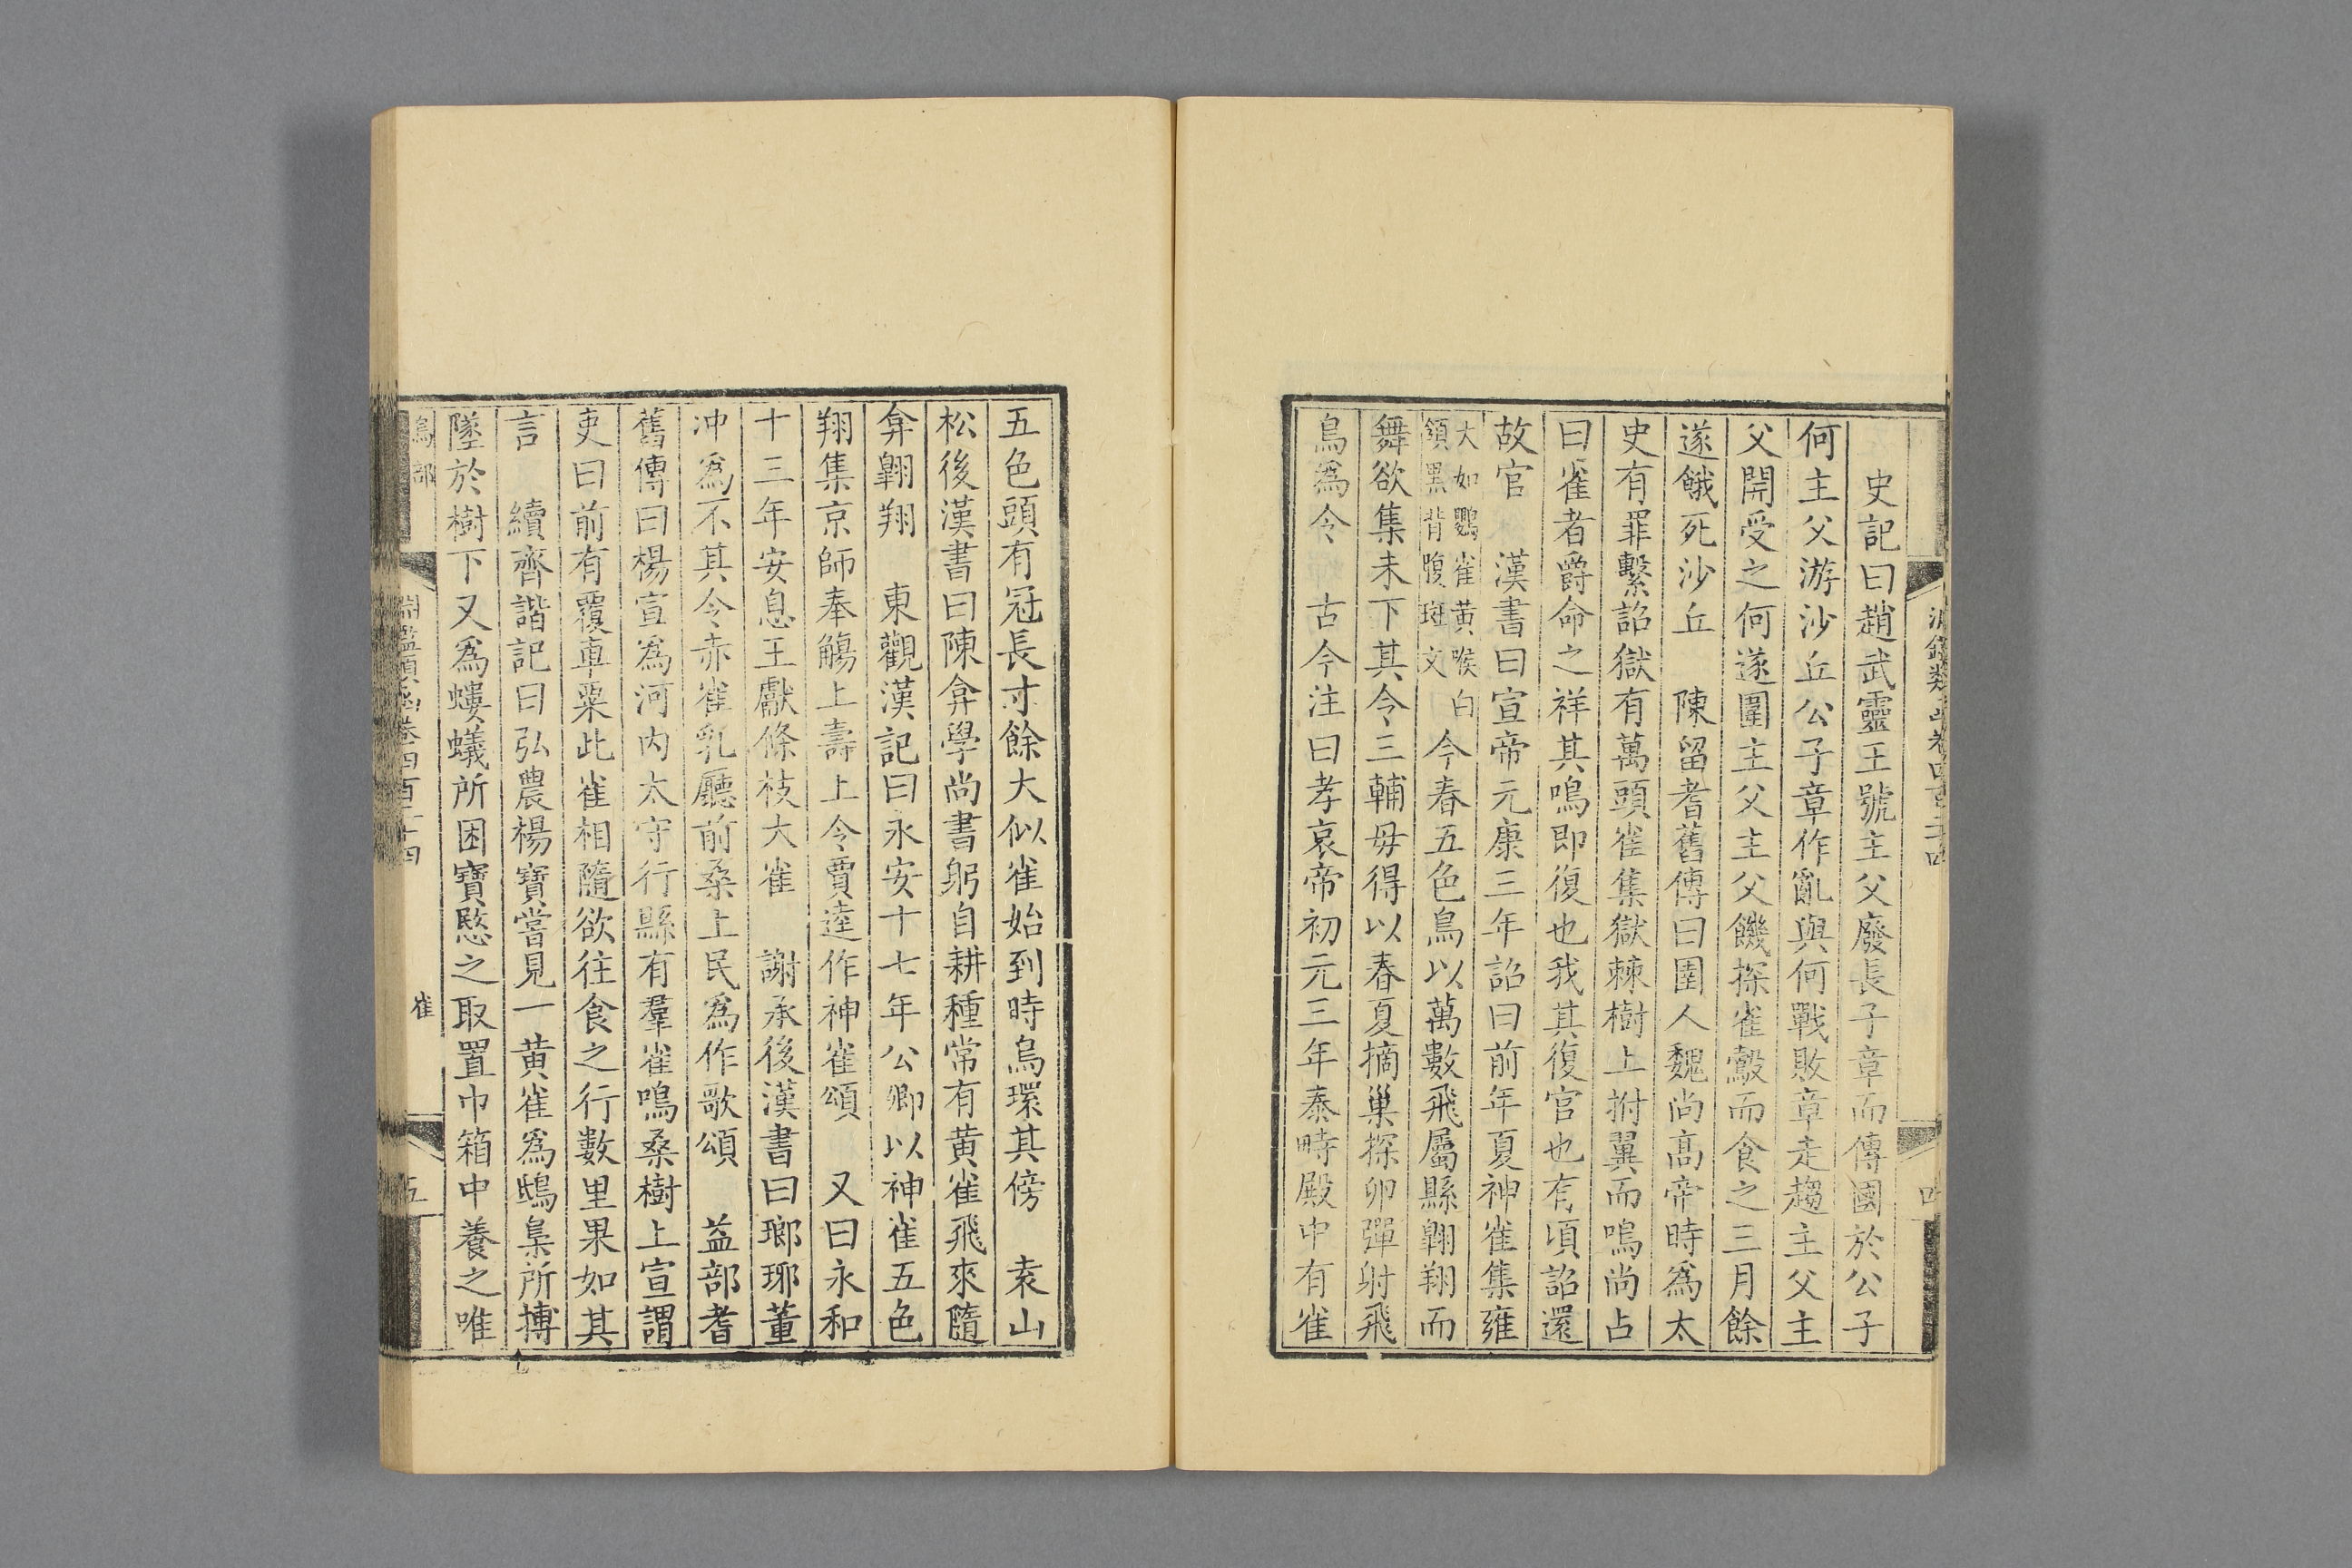 史記曰趙武靈王號主父廢長子章而傳國於公子
何主父游沙丘公子章作亂與何戰敗章走趨主父主
父開受之何遂圍主父主父饑探雀鷇而食之三月餘
遂餓死沙丘　陳留耆舊傳曰圉人魏尚高帝時為太
史有罪繫詔獄有萬頭雀集獄棘樹上拊翼而鳴尚占
曰雀者爵命之祥其鳴即復也我其復官也有頃詔還
故官　漢書曰宣帝元康三年詔曰前年夏神雀集雍
大如鷃雀黄喉白
頷黑背腹斑文
今春五色鳥以萬數飛屬縣翱翔而
舞欲集未下其令三輔毋得以春夏摘巢探卵彈射飛
鳥為令　古今注曰孝哀帝初元三年泰畤殿中有雀
五色頭有冠長寸餘大似雀始到時烏環其傍　袁山
松後漢書曰陳弇學尚書躬自耕種常有黄雀飛來隨
弇翱翔　東觀漢記曰永安十七年公卿以神雀五色
翔集京師奉觴上壽上令賈逵作神雀頌　又曰永和
十三年安息王獻條枝大雀　謝承後漢書曰瑯琊董
沖為不其令赤雀乳廳前桑上民為作歌頌　益部耆
舊傳曰楊宣為河内太守行縣有羣雀鳴桑樹上宣謂
吏曰前有覆車粟此雀相隨欲往食之行數里果如其
言　續齊諧記曰弘農楊寶嘗見一黄雀為鴟梟所搏
墜於樹下又為螻蟻所困寶愍之取置巾箱中養之唯
鳥部
淵鑑類函卷四百二十四
雀
五